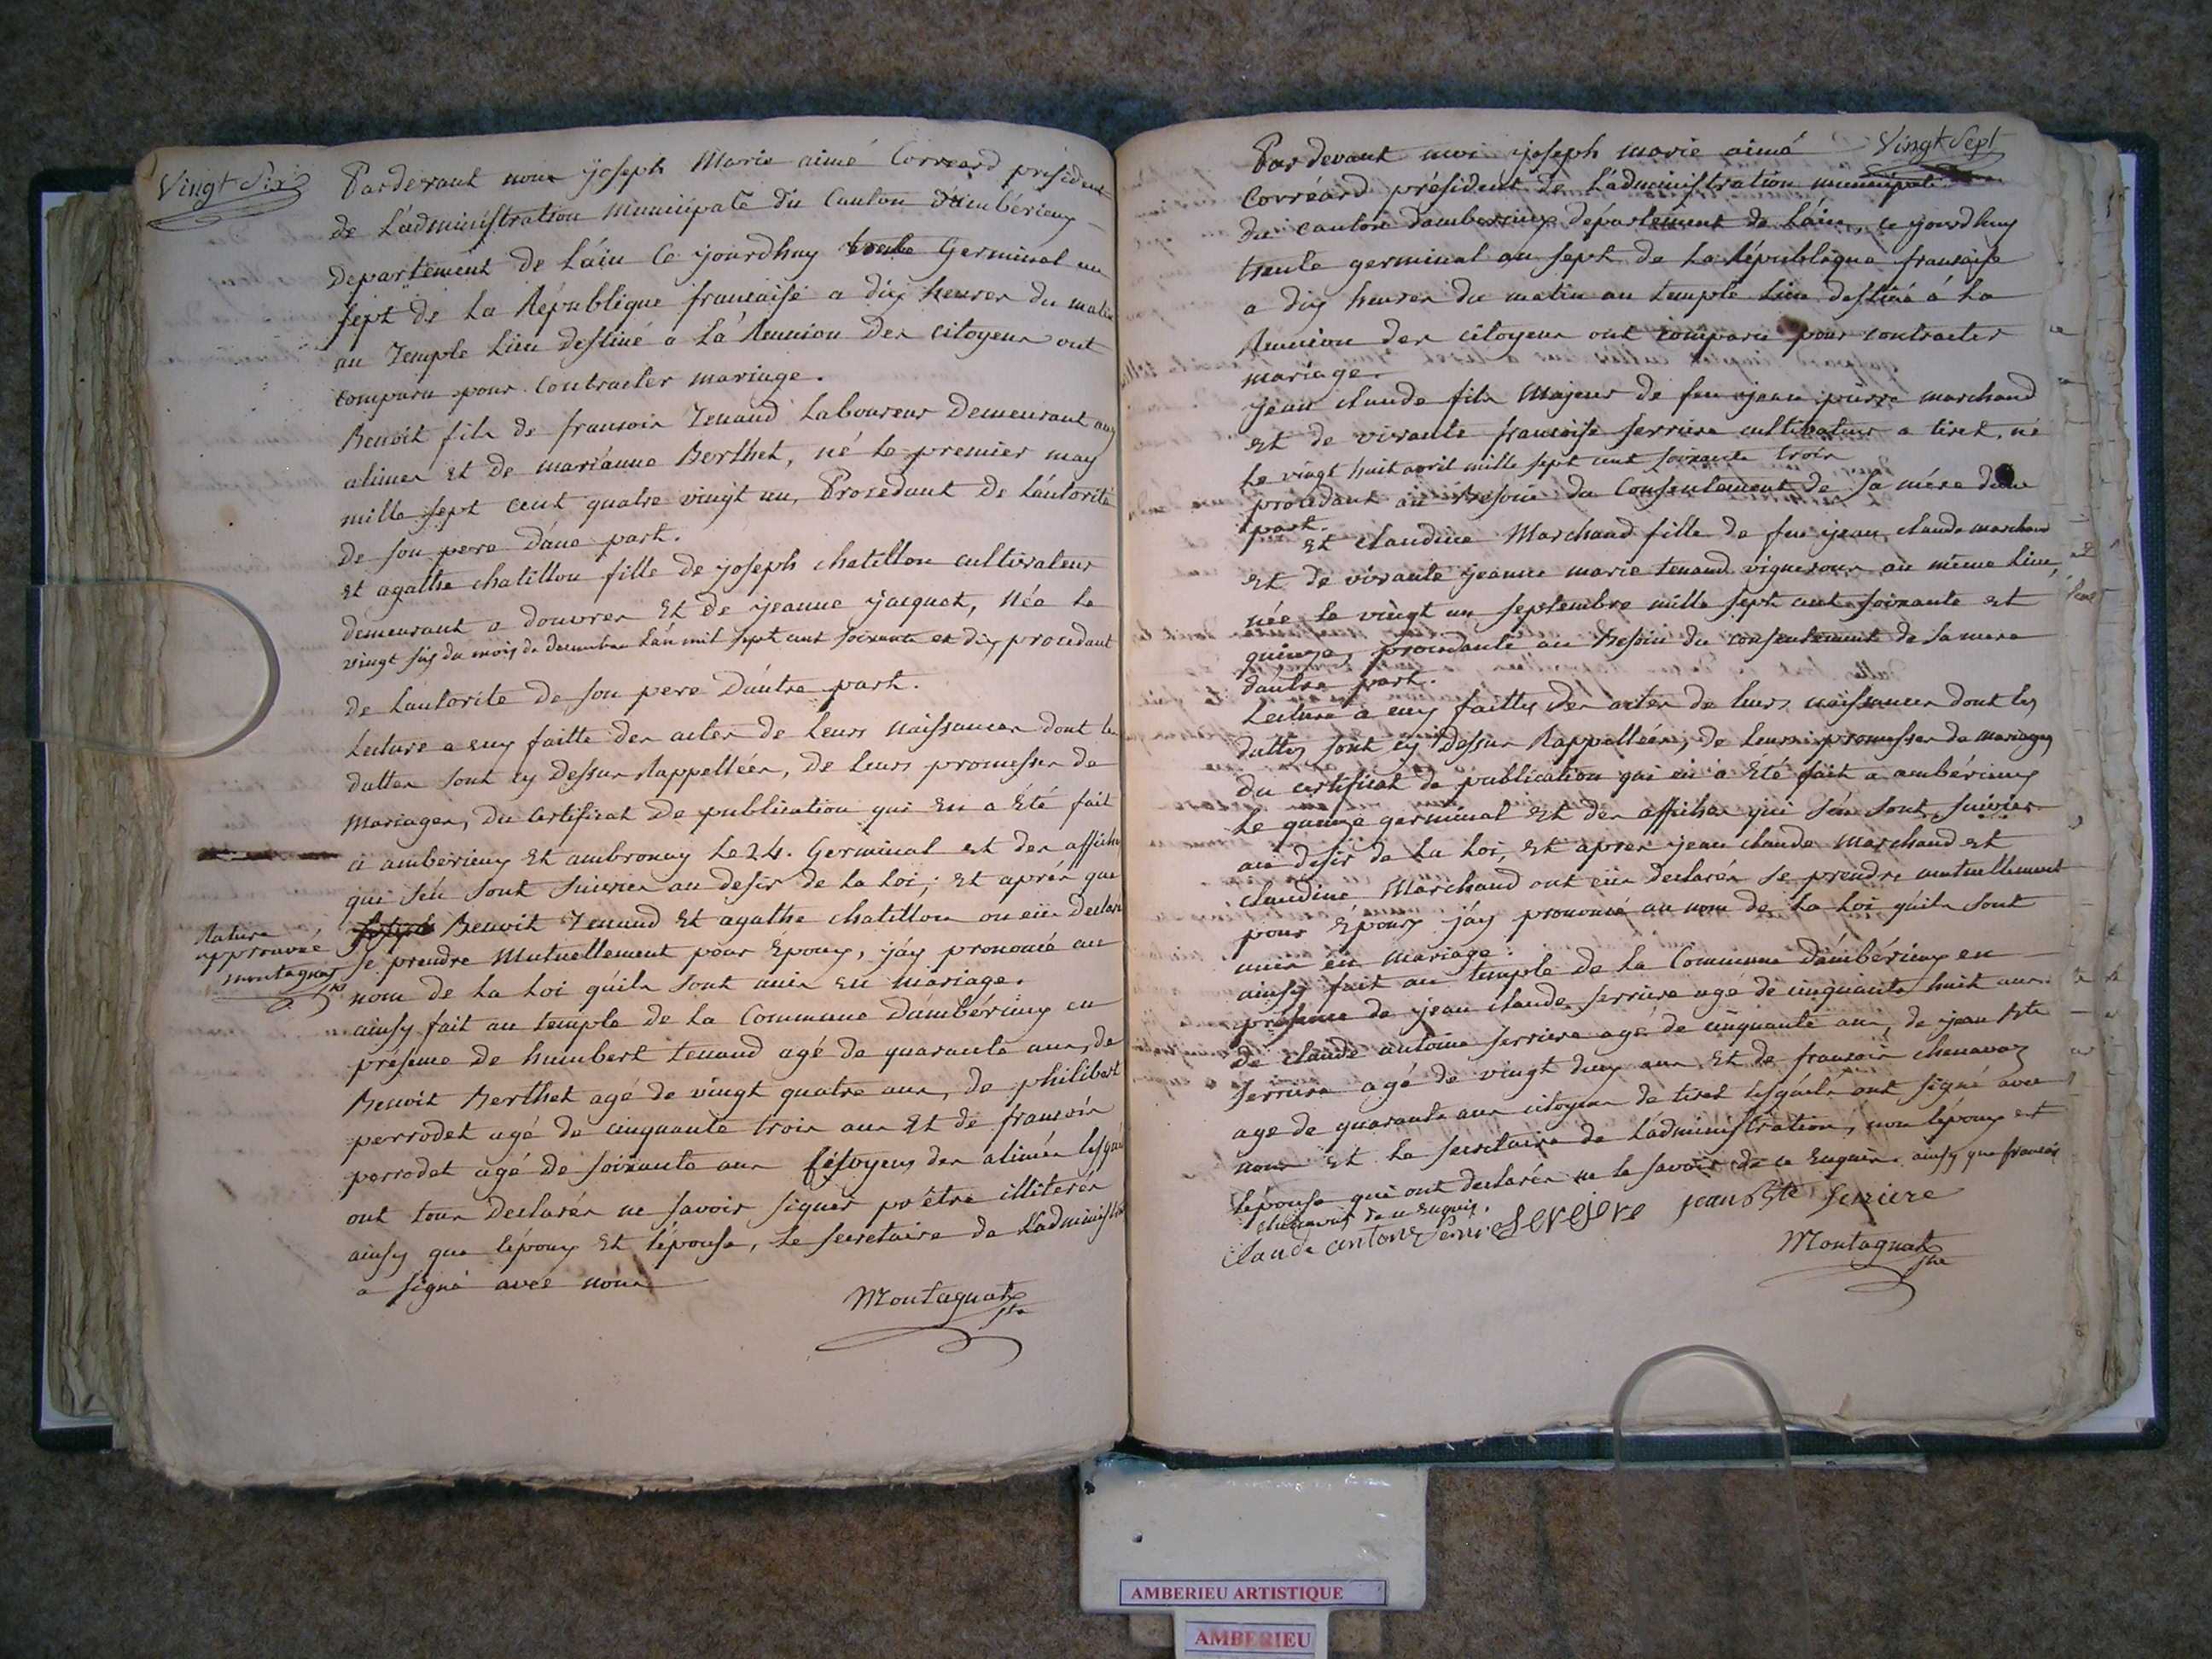 Vingt Six
Pardevant nous joseph Marie aimé Corréard président
de L'administration Municipale du Canton d'ambérieux
Departement de L'ain Ce jourdhuy trente Germinal an
sept de La République francaise a dix heures du matin
au Temple Lieu destiné a La Reunion Des citoyens ont
comparu pour Contracter mariage.
Benoit fils de francois Tenaud Laboureur Demeurant aux
alimes et de marianne Berthet, né le premier may
mille sept cent quatre vingt un, Procedant de L'autorité
de son pere D'une part.
et agathe chatillon fille de joseph chatillon cultivateur
demeurant a douvres Et de jeanne jacquet, Née le
vingt six du mois de decembre L'an mil sept cent soixante et dix procedant
de Lautorité de son pere D'autre part.
Lecture a eux faitte des actes de Leurs naissances dont les
dattes sont cy Dessus Rappellées, de leurs promesses de
Mariages, Du Certificat De publication qui En a Été fait
a amberieux Et ambronay Le 24. Germinal et des affiches
qui s'en sont suivies au desir de La Loi; Et aprés que
Benoit Tenaud Et agathe chatillon on eu Declaré
Rature
approuvé
montagnat
Sre
se prendre Mutuellement pour Epoux, j'ay prononcé au
nom de La Loi qu'ils sont unis En mariage.
ainsy fait au temple de La Commune D'ambérieux en
presence de humbert tenaud agé de quarante ans, de
Benoit Berthet agé de vingt quatre ans, de philibert
perrodet agé de cinquante trois ans Et de francois
perrodet agé de soixante ans citoyens des alimes lesquels
ont tous Declarés ne savoir signer pr être illiterés
ainsy que L'époux Et L'épouse, Le secretaire de L'administ
a signé avec nous
Montagnat
Sre
Vingt Sept
Par devant moi joseph marie aimé
Corréard président de L'administration municipale
du canton damberieux département de L'ain, ce jourdhuy
trente germinal an sept de La République francaise
a dix heures du matin au temple Lieu destiné á La
Reunion des citoyens ont comparu pour contracter
mariage.
jean claude fils Majeur de feu jean pierre marchand
et de vivante francoise serriere cultivateur a tiret, né
Le vingt huit avril mille sept cent soixante trois
procédant au Besoin du Consentement de sa mére dune
part.
Et claudine Marchand fille de feu jean claude marchand
Et de vivante jeanne marie tenaud vigneronne au même Lieu,
née Le vingt un septembre mille sept cent soixante et
quinze, procedante au Besoin du consentement de sa mere
d'autre part.
Lecture a eux faitte Des actes de leurs naissances dont les
dattes sont cy Dessus Rappellées, de Leurs promesses de mariages
du certificat de publication qui en a Eté fait a ambérieux
Le quinze germinal Et des affiches qui s'en sont suivies
au desir de La Loi, Et apres jean claude Marchand et
claudine Marchand ont eu declarés se prendre mutuellement
pour Epoux j'ay prononcé au nom de La Loi qu'ils sont
unis en mariage.
ainsy fait au temple de La Commune D'ambérieux en
présence de jean claude serriere agé de cinquante huit ans
de claude antoine serriere agé de cinquante ans, de jean Bte
serriere agé de vingt deux ans Et de francois chenavaz
age de quarante ans citoyens de tiret lesquels ont signé avec
nous Et Le secretaire de L'administration, non L'époux et
L'épouse qui ont declarés ne le savoir de ce Enquis. ainsy que francois
chenavaz de ce Enquis.
Claude antone jean Bte Serriere
Montagnat
Sre
AMBERIEU ARTISTIQUE
AMBERIEU